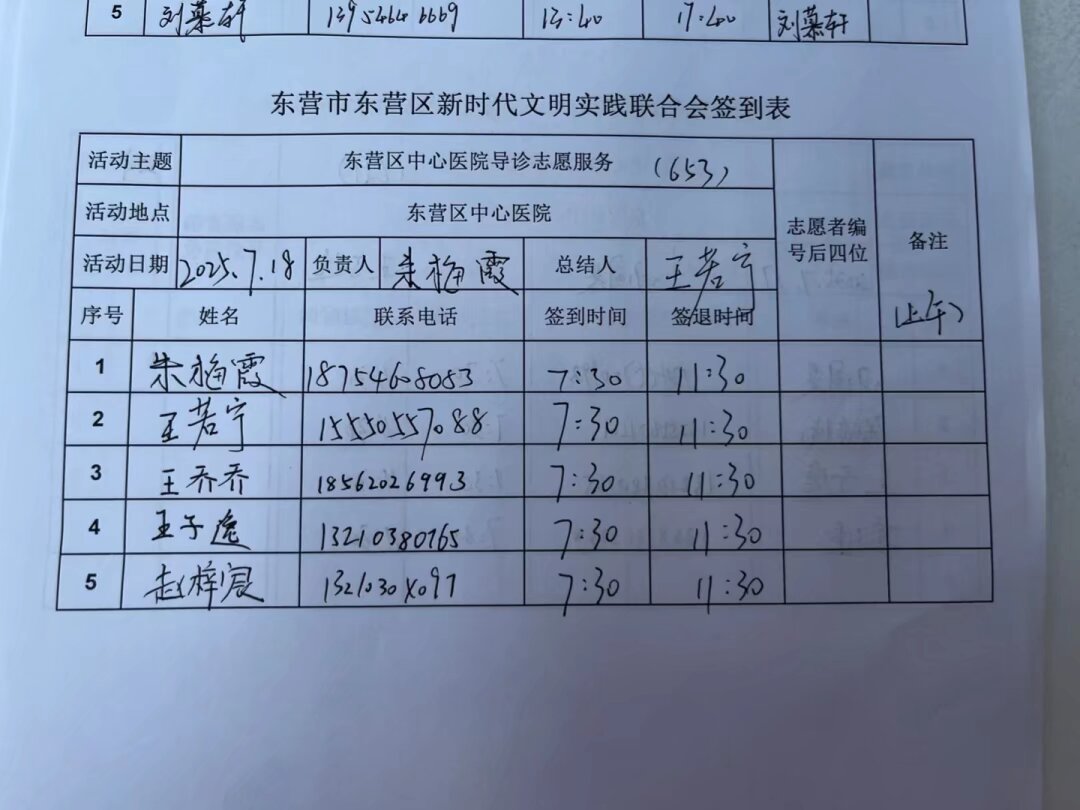 5 刘慕轩 17:40 刘慕轩
东营市东营区新时代文明实践联合会签到表
活动主题 东营区中心医院导诊志愿服务 (653) 志愿者编号后四位 备注
活动地点 东营区中心医院
活动日期 2025.7.18 负责人 朱梅霞 总结人 王若宁
序号 姓名 联系电话 签到时间 签退时间 (上午)
1 朱梅霞 18754608083 7:30 11:30
2 王若宁 15550557088 7:30 11:30
3 王乔乔 18562026993 7:30 11:30
4 王子逸 13210380765 7:30 11:30
5 赵梓宸 7:30 11:30